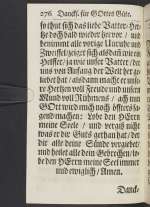 276 Danckſ. für GOttes Güte.
ſo thut ſich das liebe Vatter-Her-
tze doch bald wieder hervor / und
benimmt alle vorige Unruhe und
Zweiffel / zeiget ſich als dann wie ein
Helffer / ja wie unſer Vatter / der
uns von Anfang der Welt her ge-
liebet hat / alsdann macht er unſe-
re Hertzen voll Freude und unſern
Mund voll Rühmens / ach mein
GOtt wird mich noch offters ſa-
gend machen: Lobe den HErrn
meine Seele / und vergiß nicht
was er dir Guts gethan hat / der
dir alle deine Sünde vergiebet/
und heilet alle dein Gebrechen / lo-
be den HErrn meine Seel immer
und ewiglich / Amen.
Danck-